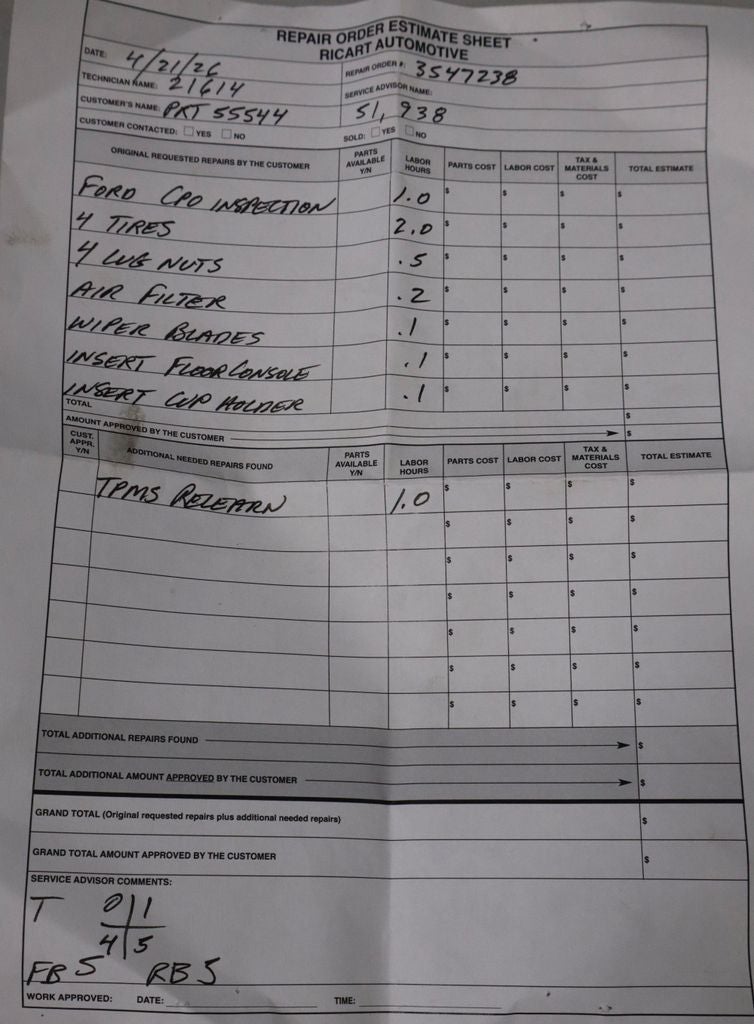 REPAIR ORDER ESTIMATE SHEET
RICART AUTOMOTIVE
DATE: 4/21/26
REPAIR ORDER #: 3547238
TECHNICIAN NAME: 21614
SERVICE ADVISOR NAME:
CUSTOMER'S NAME: PRT 55544
51,938
CUSTOMER CONTACTED: YES NO
SOLD: YES NO
ORIGINAL REQUESTED REPAIRS BY THE CUSTOMER PARTS AVAILABLE Y/N LABOR HOURS PARTS COST LABOR COST TAX & MATERIALS COST TOTAL ESTIMATE
FORD CPO INSPECTION 1.0 $ $ $ $
4 TIRES 2.0 $ $ $ $
4 LUG NUTS .5 $ $ $ $
AIR FILTER .2 $ $ $ $
WIPER BLADES .1 $ $ $ $
INSERT FLOOR CONSOLE .1 $ $ $ $
INSERT CUP HOLDER .1 $ $ $ $
TOTAL $
AMOUNT APPROVED BY THE CUSTOMER $
CUST. APPR. Y/N ADDITIONAL NEEDED REPAIRS FOUND PARTS AVAILABLE Y/N LABOR HOURS PARTS COST LABOR COST TAX & MATERIALS COST TOTAL ESTIMATE
TPMS RELEARN 1.0 $ $ $ $
$ $ $ $
$ $ $ $
$ $ $ $
$ $ $ $
$ $ $ $
$ $ $ $
TOTAL ADDITIONAL REPAIRS FOUND $
TOTAL ADDITIONAL AMOUNT APPROVED BY THE CUSTOMER $
GRAND TOTAL (Original requested repairs plus additional needed repairs) $
GRAND TOTAL AMOUNT APPROVED BY THE CUSTOMER $
SERVICE ADVISOR COMMENTS:
T 0 1
4 5
FB 5 RB 5
WORK APPROVED: DATE: TIME: